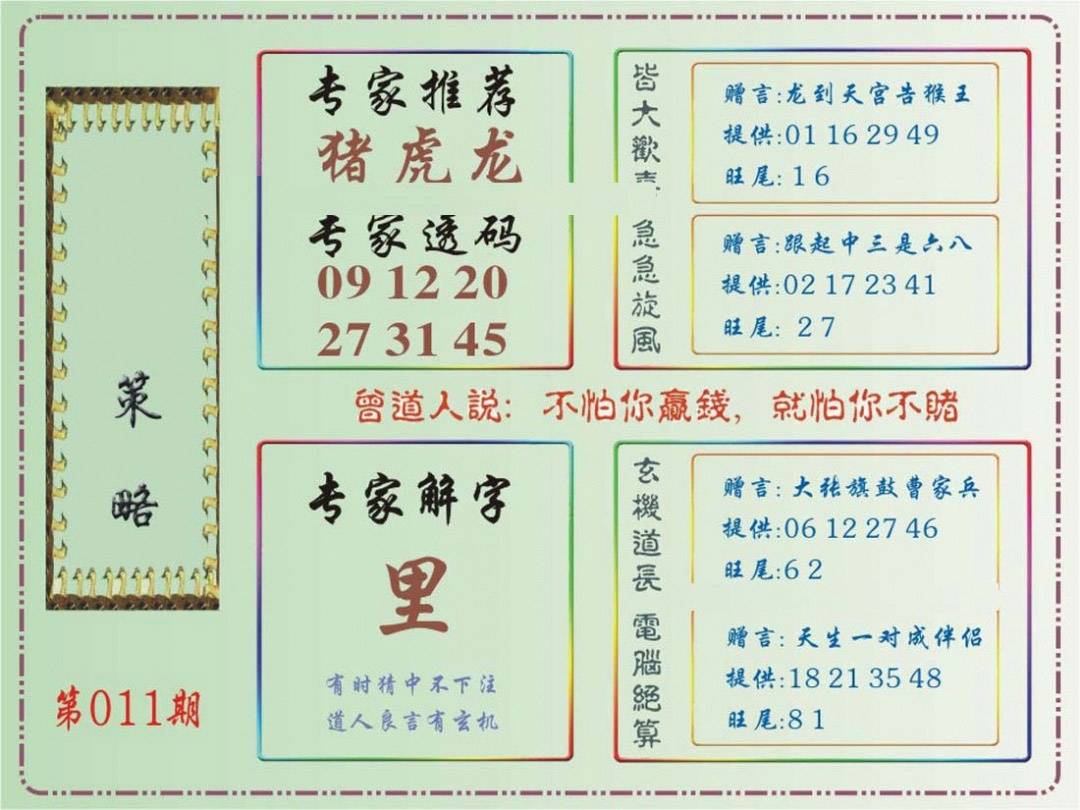 策
略
第011期
专家推荐
猪虎龙
专家透码
09 12 20
27 31 45
皆大歡
赠言:龙到天宫告猴王
提供:01 16 29 49
旺尾: 1 6
急急旋風
赠言:跟起中三是六八
提供:02 17 23 41
旺尾: 2 7
曾道人説: 不怕你贏錢, 就怕你不賭
专家解字
里
有时猜中不下注
道人良言有玄机
玄機道長
赠言: 大张旗鼓曹家兵
提供:06 12 27 46
旺尾:6 2
電腦絕算
赠言: 天生一对成伴侣
提供:18 21 35 48
旺尾:8 1